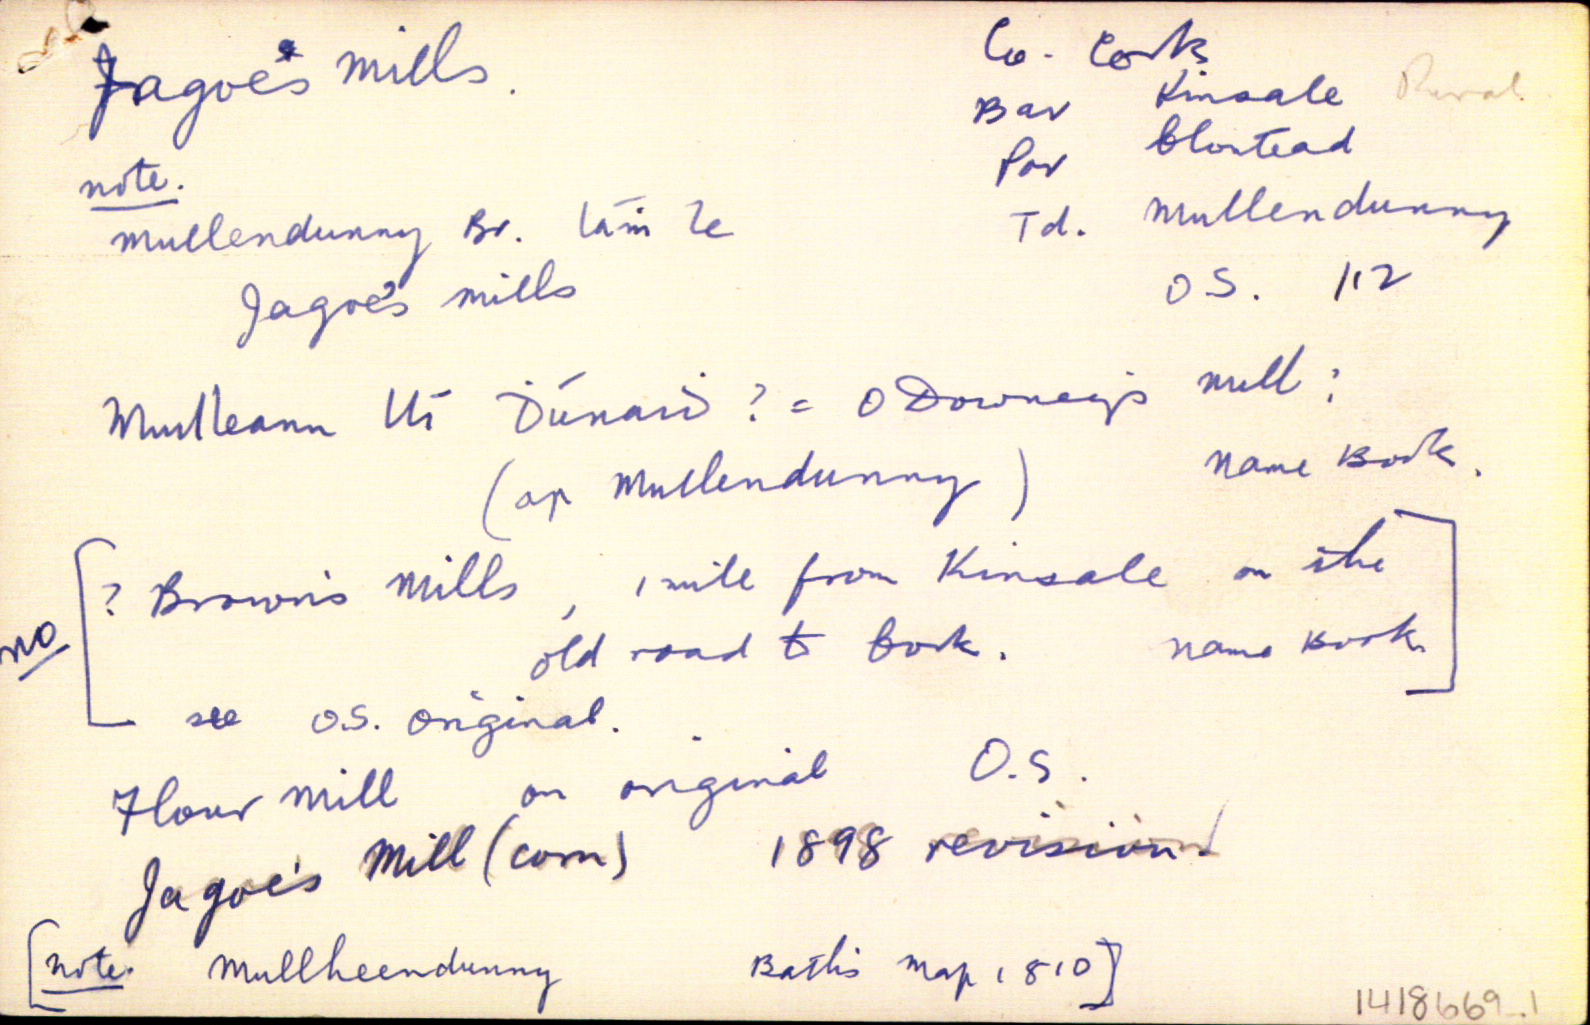 Jagoe's Mills.
Co. Cork
Bar Kinsale Rural
Par Clontead
Td. Mullendunny
O.S. 112
note.
Mullendunny Br. láim le
Jagoe's Mills
Muileann Uí Ḋúnaiḋ ? = O Downey's mill :
(ap Mullendunny) Name Book.
? Brown's Mills, 1 mile from Kinsale on the
old road to Cork. Name Book.
no
see O.S. original.
Flour Mill on original O.S.
Jagoe's Mill (corn) 1898 revision.
[note. Mullheendunny Bath's Map 1810]
1418669_1